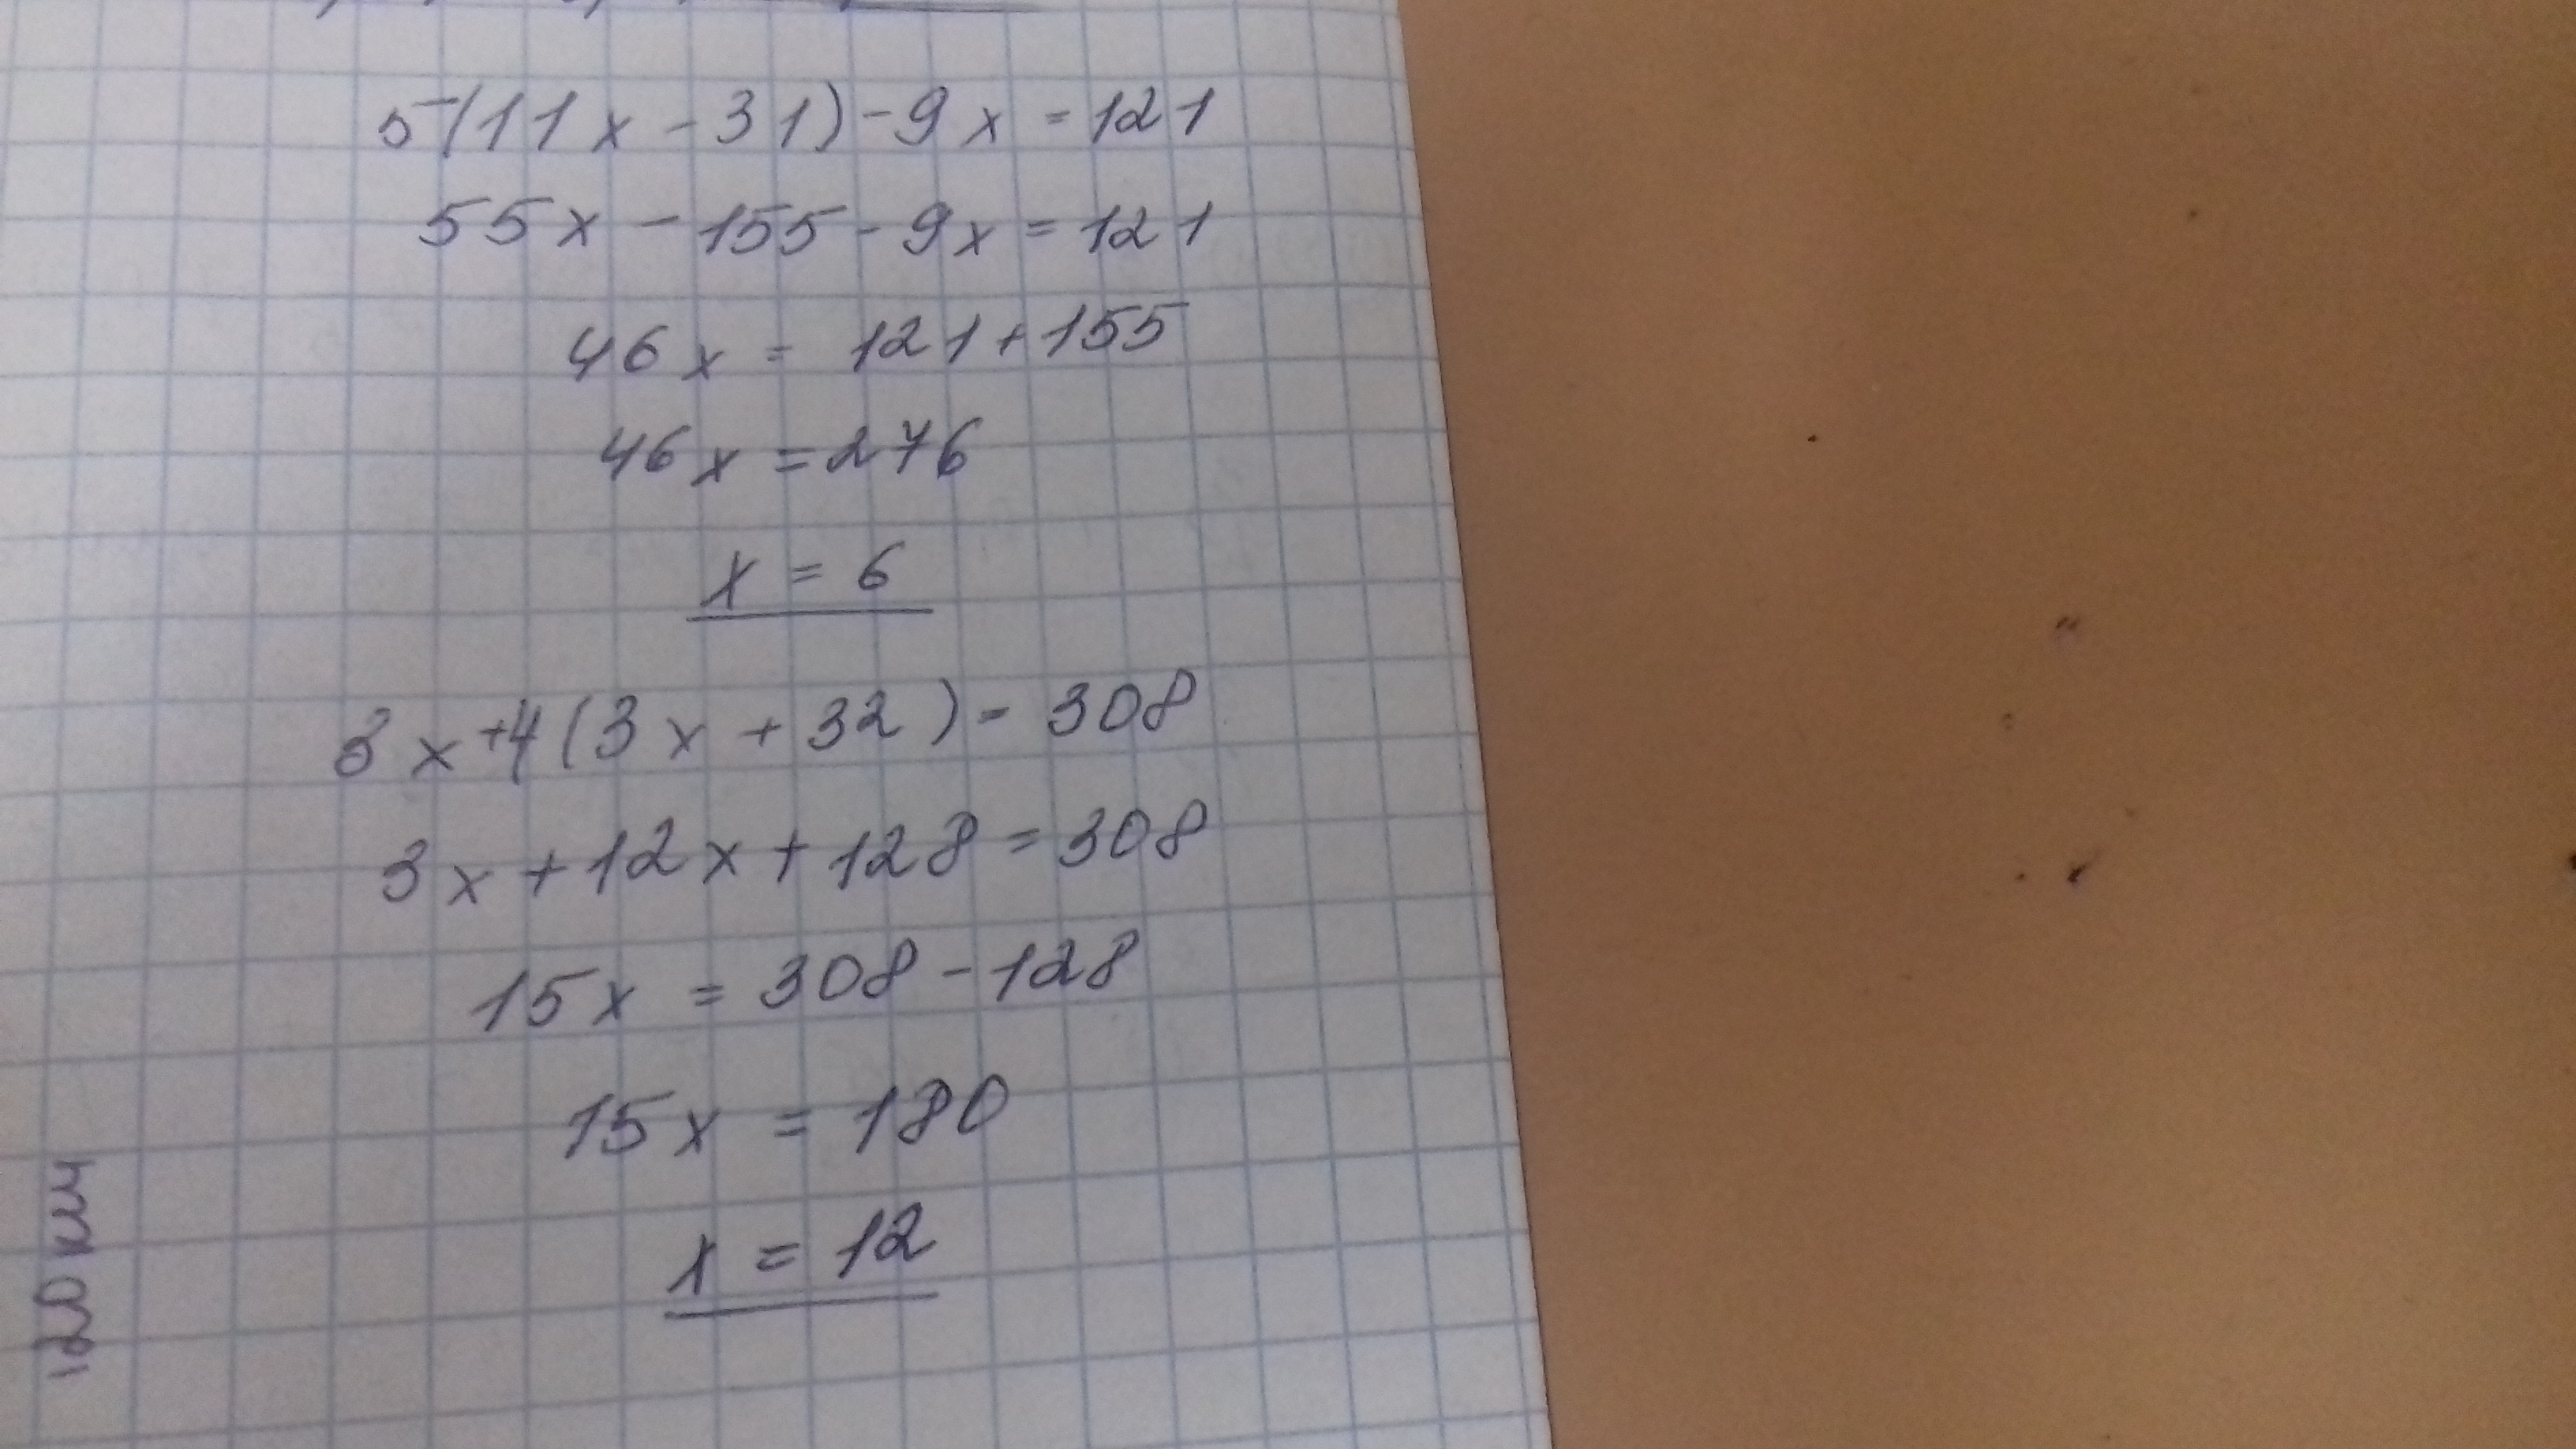 5(11x-31)-9x=121
55x-155-9x=121
46x=121+155
46x=276
x=6
3x+4(3x+32)=308
3x+12x+128=308
15x=308-128
15x=180
x=12
120 км